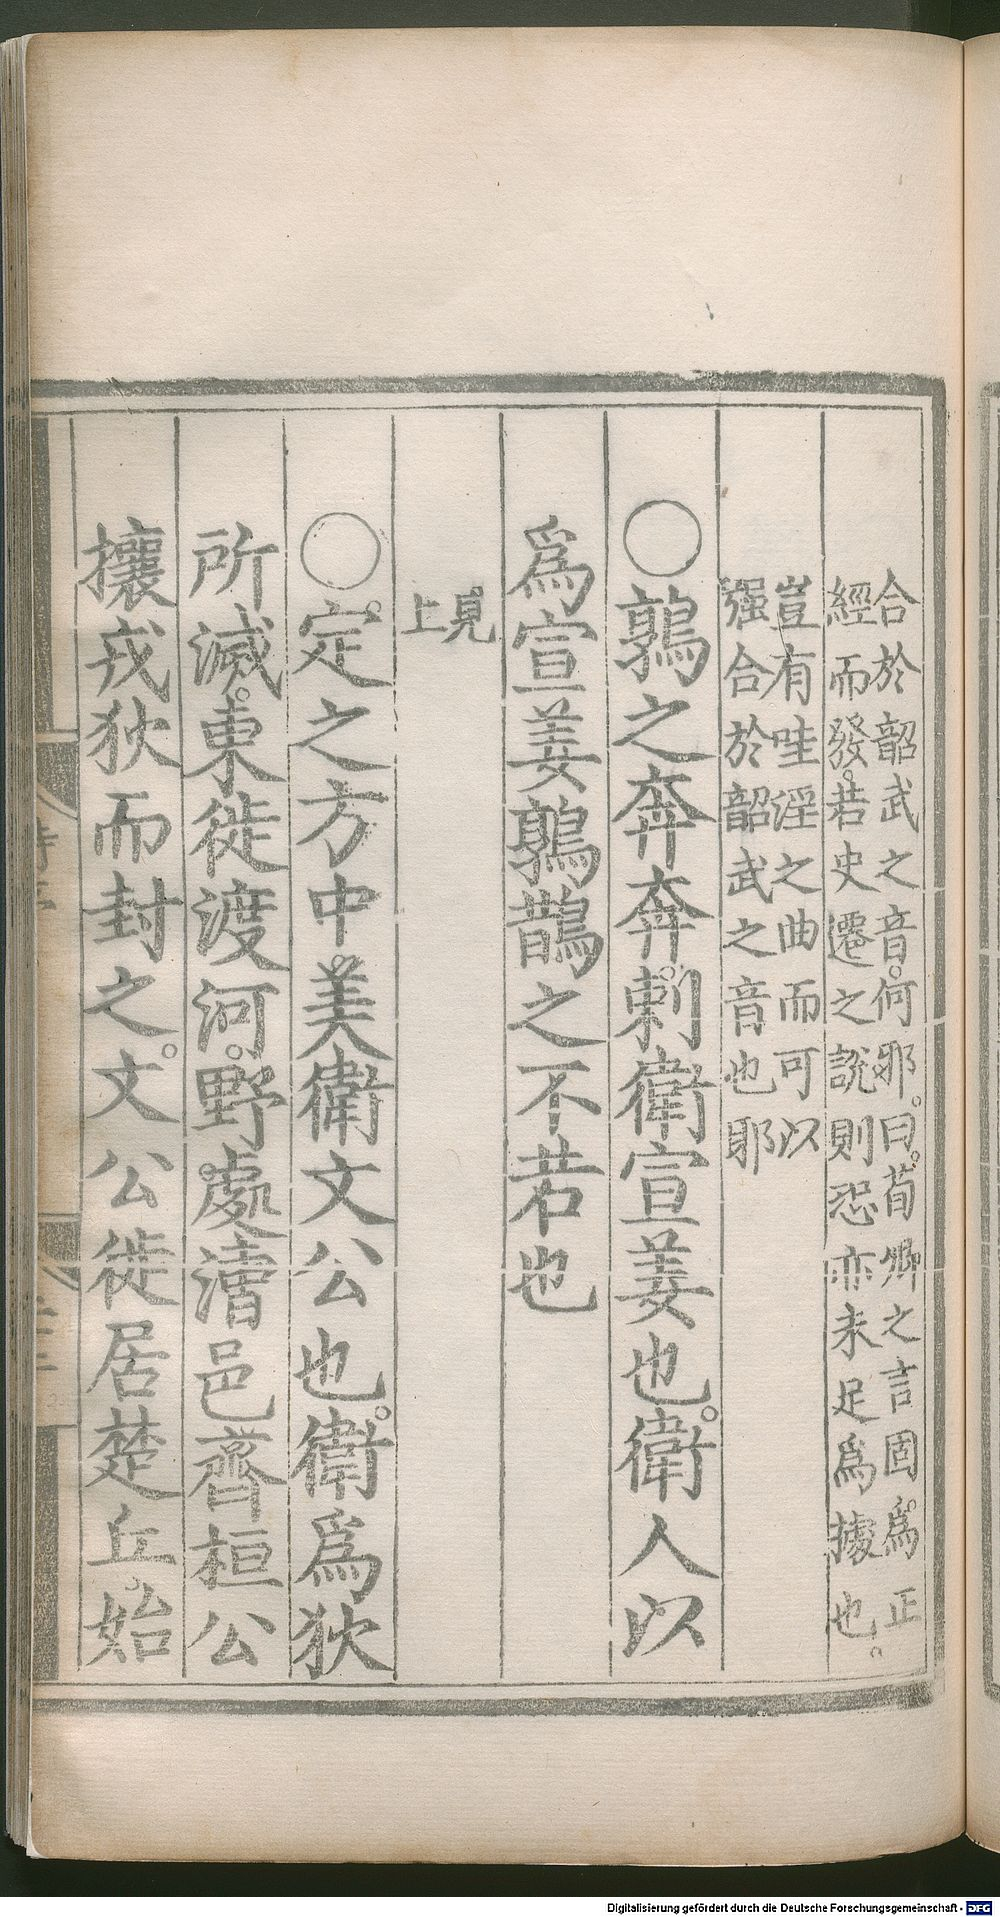 合於韶武之音何邪曰荀卿之言固爲正
經而發若史遷之說則恐亦未足爲據也
豈有哇淫之曲而可以
强合於韶武之音也耶
○鶉之奔奔刺衛宣姜也衛人以
爲宣姜鶉鵲之不若也
見
上
○定之方中美衛文公也衛爲狄
所滅東徙渡河野處漕邑齊桓公
攘戎狄而封之文公徙居楚丘始
Digitalisierung gefördert durch die Deutsche Forschungsgemeinschaft - DFG